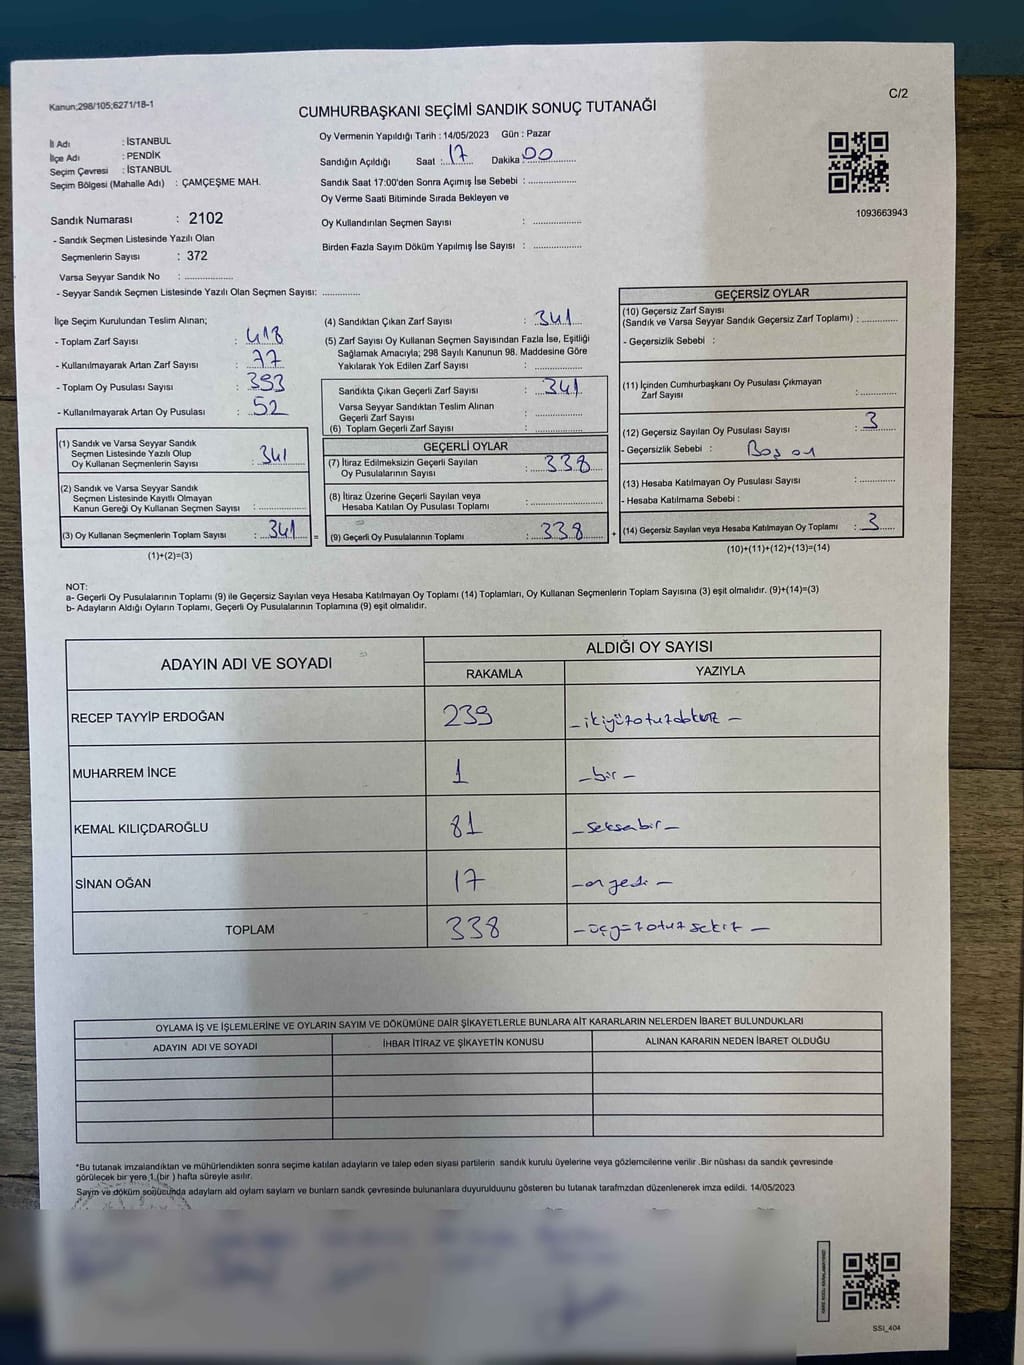 Kanun;298/105;6271/18-1
C/2
CUMHURBAŞKANI SEÇİMİ SANDIK SONUÇ TUTANAĞI
İl Adı : İSTANBUL
İlçe Adı : PENDİK
Seçim Çevresi : İSTANBUL
Seçim Bölgesi (Mahalle Adı) : ÇAMÇEŞME MAH.
Oy Vermenin Yapıldığı Tarih : 14/05/2023 Gün : Pazar
Sandığın Açıldığı Saat : 17 Dakika : 00
Sandık Saat 17:00'den Sonra Açımış İse Sebebi :
Oy Verme Saati Bitiminde Sırada Bekleyen ve
Oy Kullandırılan Seçmen Sayısı :
Birden Fazla Sayım Döküm Yapılmış İse Sayısı :
1093663943
Sandık Numarası : 2102
- Sandık Seçmen Listesinde Yazılı Olan
Seçmenlerin Sayısı : 372
Varsa Seyyar Sandık No :
- Seyyar Sandık Seçmen Listesinde Yazılı Olan Seçmen Sayısı:
İlçe Seçim Kurulundan Teslim Alınan;
- Toplam Zarf Sayısı : 418
- Kullanılmayarak Artan Zarf Sayısı : 77
- Toplam Oy Pusulası Sayısı : 393
- Kullanılmayarak Artan Oy Pusulası : 52
(1) Sandık ve Varsa Seyyar Sandık
Seçmen Listesinde Yazılı Olup
Oy Kullanan Seçmenlerin Sayısı : 341
(2) Sandık ve Varsa Seyyar Sandık
Seçmen Listesinde Kayıtlı Olmayan
Kanun Gereği Oy Kullanan Seçmen Sayısı :
(3) Oy Kullanan Seçmenlerin Toplam Sayısı : 341 =
(1)+(2)=(3)
(4) Sandıktan Çıkan Zarf Sayısı : 341
(5) Zarf Sayısı Oy Kullanan Seçmen Sayısından Fazla İse, Eşitliği
Sağlamak Amacıyla; 298 Sayılı Kanunun 98. Maddesine Göre
Yakılarak Yok Edilen Zarf Sayısı :
Sandıkta Çıkan Geçerli Zarf Sayısı : 341
Varsa Seyyar Sandıktan Teslim Alınan
Geçerli Zarf Sayısı :
(6) Toplam Geçerli Zarf Sayısı :
GEÇERLİ OYLAR
(7) İtiraz Edilmeksizin Geçerli Sayılan
Oy Pusulalarının Sayısı : 338
(8) İtiraz Üzerine Geçerli Sayılan veya
Hesaba Katılan Oy Pusulası Toplamı :
(9) Geçerli Oy Pusulalarının Toplamı : 338 +
GEÇERSİZ OYLAR
(10) Geçersiz Zarf Sayısı
(Sandık ve Varsa Seyyar Sandık Geçersiz Zarf Toplamı) :
- Geçersizlik Sebebi :
(11) İçinden Cumhurbaşkanı Oy Pusulası Çıkmayan
Zarf Sayısı :
(12) Geçersiz Sayılan Oy Pusulası Sayısı : 3
- Geçersizlik Sebebi : Boş oy
(13) Hesaba Katılmayan Oy Pusulası Sayısı :
- Hesaba Katılmama Sebebi :
(14) Geçersiz Sayılan veya Hesaba Katılmayan Oy Toplamı : 3
(10)+(11)+(12)+(13)=(14)
NOT:
a- Geçerli Oy Pusulalarının Toplamı (9) ile Geçersiz Sayılan veya Hesaba Katılmayan Oy Toplamı (14) Toplamları, Oy Kullanan Seçmenlerin Toplam Sayısına (3) eşit olmalıdır. (9)+(14)=(3)
b- Adayların Aldığı Oyların Toplamı, Geçerli Oy Pusulalarının Toplamına (9) eşit olmalıdır.
ADAYIN ADI VE SOYADI ALDIĞI OY SAYISI
RAKAMLA YAZIYLA
RECEP TAYYİP ERDOĞAN 239 -ikiyüzotuzdokuz-
MUHARREM İNCE 1 -bir-
KEMAL KILIÇDAROĞLU 81 -seksenbir-
SİNAN OĞAN 17 -on yedi-
TOPLAM 338 -üçyüzotuzsekiz-
OYLAMA İŞ VE İŞLEMLERİNE VE OYLARIN SAYIM VE DÖKÜMÜNE DAİR ŞİKAYETLERLE BUNLARA AİT KARARLARIN NELERDEN İBARET BULUNDUKLARI
ADAYIN ADI VE SOYADI İHBAR İTİRAZ VE ŞİKAYETİN KONUSU ALINAN KARARIN NEDEN İBARET OLDUĞU
*Bu tutanak imzalandıktan ve mühürlendikten sonra seçime katılan adayların ve talep eden siyasi partilerin sandık kurulu üyelerine veya gözlemcilerine verilir .Bir nüshası da sandık çevresinde
görülecek bir yere 1.(bir ) hafta süreyle asılır.
Sayım ve döküm sonucunda adayların ald oyların sayların ve bunların sandk çevresinde bulunanlara duyurulduunu gösteren bu tutanak tarafmzdan düzenlenerek imza edildi. 14/05/2023
SSI_404